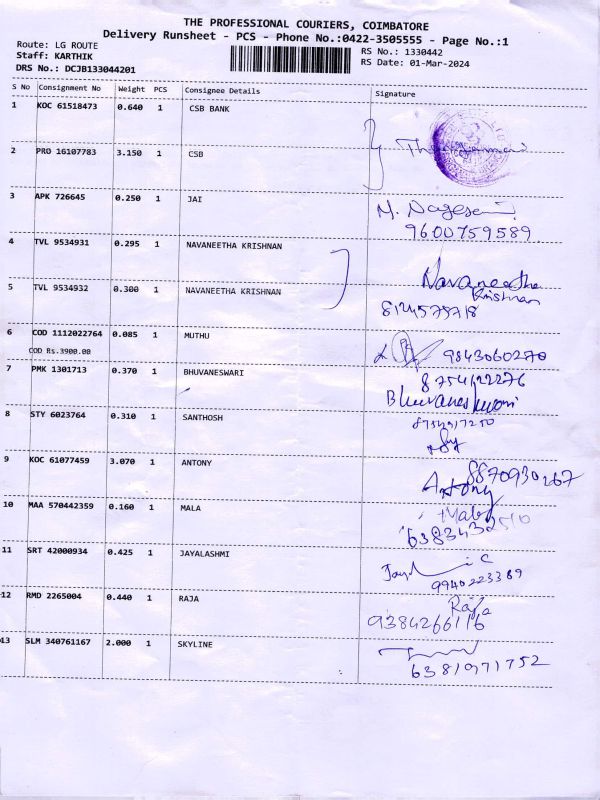 THE PROFESSIONAL COURIERS, COIMBATORE
Delivery Runsheet - PCS - Phone No.:0422-3505555 - Page No.:1
Route: LG ROUTE
RS No.: 1330442
Staff: KARTHIK
RS Date: 01-Mar-2024
DRS No.: DCJB133044201
S No Consignment No Weight PCS Consignee Details Signature
1 KOC 61518473 0.640 1 CSB BANK
2 PRO 16107783 3.150 1 CSB
3 APK 726645 0.250 1 JAI N. Nagesan
9600759589
4 TVL 9534931 0.295 1 NAVANEETHA KRISHNAN Navaneetha
Krishnan
5 TVL 9534932 0.300 1 NAVANEETHA KRISHNAN
6 COD 1112022764 0.085 1 MUTHU 9843060270
COD Rs.3900.00
7 PMK 1301713 0.370 1 BHUVANESWARI
Bhuvaneshwari
8 STY 6023764 0.310 1 SANTHOSH
9 KOC 61077459 3.070 1 ANTONY 8870930267
Antony
10 MAA 570442359 0.160 1 MALA Mala
6383432510
11 SRT 42000934 0.425 1 JAYALASHMI
9940223389
12 RMD 2265004 0.440 1 RAJA Raja
9384266116
13 SLM 340761167 2.000 1 SKYLINE
6381971752